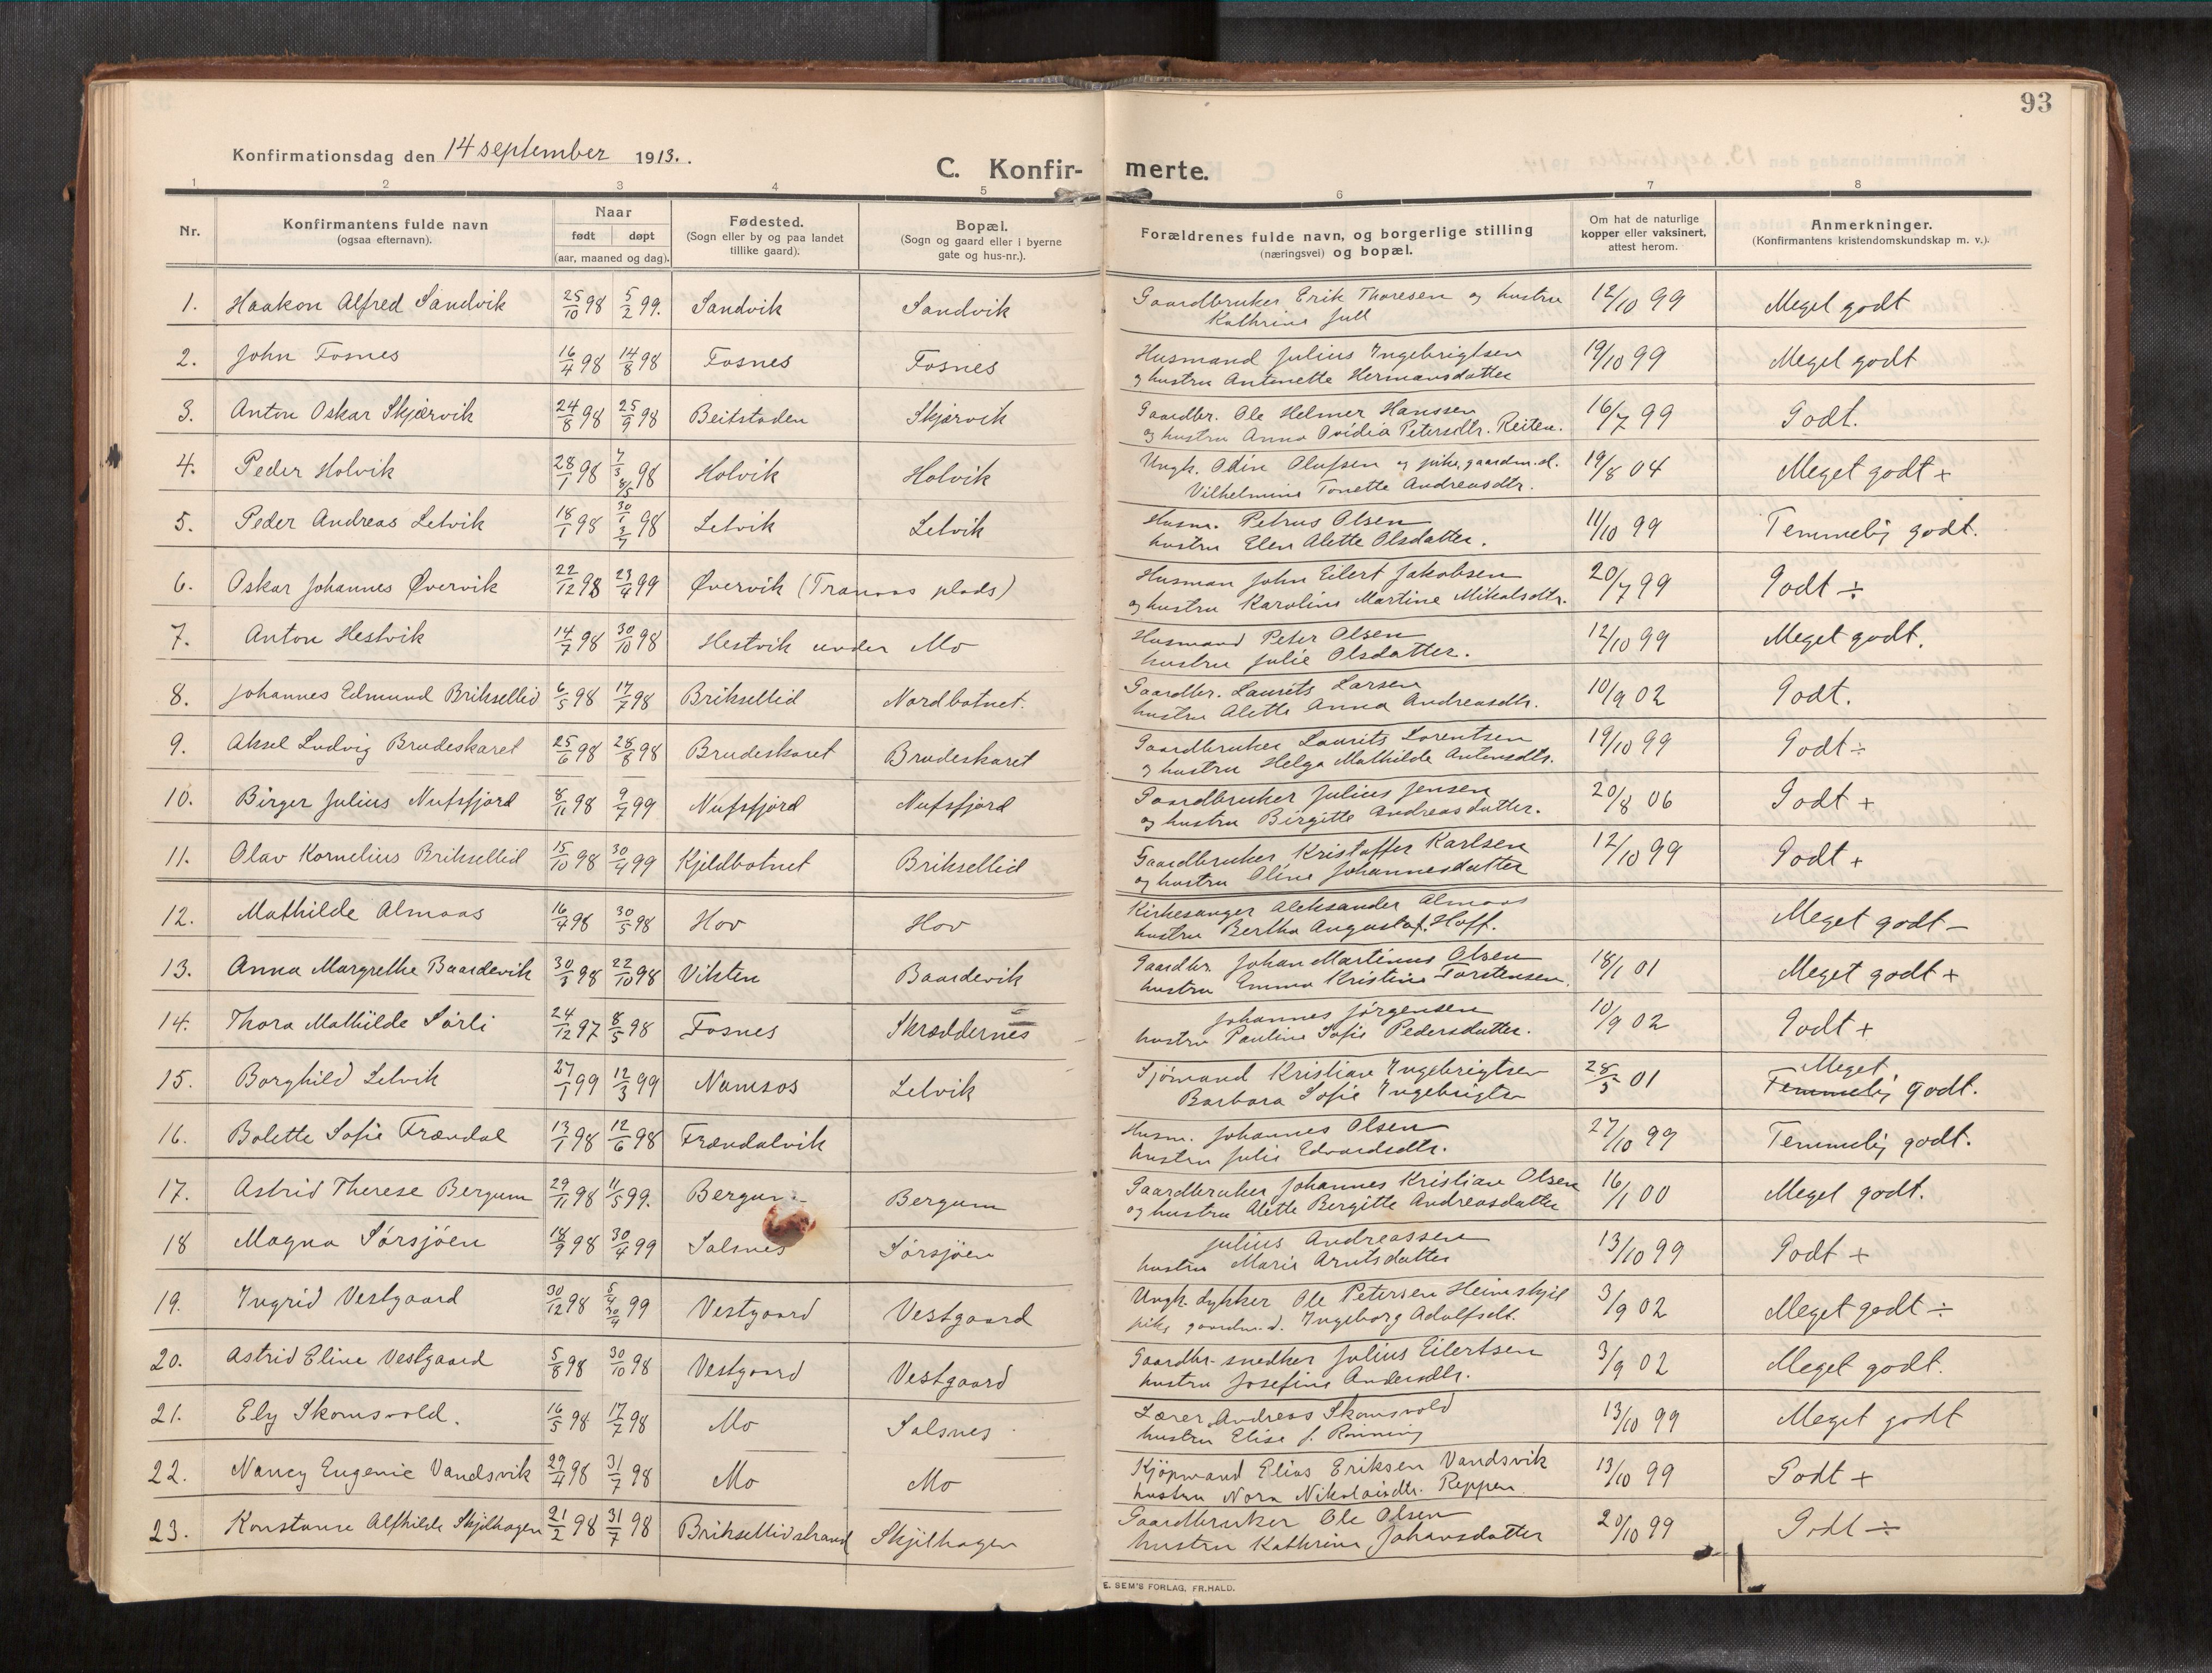 93
Konfirmationsdag den 14 september 1913.
C. Konfir- merte.
1 2 3 4 5 6 7 8
Nr. Konfirmantens fulde navn (ogsaa efternavn). Naar født døpt (aar, maaned og dag). Fødested. (Sogn eller by og paa landet tillike gaard). Bopæl. (Sogn og gaard eller i byerne gate og hus-nr.). Forældrenes fulde navn, og borgerlige stilling (næringsvei) og bopæl. Om hat de naturlige kopper eller vaksinert, attest herom. Anmerkninger. (Konfirmantens kristendomskundskap m. v.).
1. Haakon Alfred Sandvik 25/10 98 5/2 99. Sandvik Sandvik Gaardbruker Erik Thoresen og hustru 12/10 99 Meget godt
Kathrine Jull
2. John Fosnes 16/4 98 14/8 98 Fosnes Fosnes Husmand Julius Ingebrigtsen 19/10 99 Meget godt
og hustru Antonette Hermansdatter
3. Anton Oskar Skjærvik 24/8 98 25/9 98 Beitstaden Skjærvik Gaardbr. Ole Helmer Hanssen 16/7 99 Godt.
og hustru Anna Ovidia Petersdtr. Reiten.
4. Peder Holvik 28/1 98 7/3 8/5 98 Holvik Holvik Ungk. Odin Olufsen og pike, gaardm.d. 19/8 04 Meget godt +
Vilhelmine Tonette Andreasdtr.
5. Peder Andreas Letvik 18/1 98 30/1 3/7 98 Letvik Letvik Husm. Petrus Olsen 11/10 99 Temmelig godt.
hustru Elen Alette Olsdatter.
6. Oskar Johannes Øvervik 22/12 98 23/4 99 Øvervik (Tranaas plads) Husman John Eilert Jakobsen 20/7 99 Godt ÷
og hustru Karoline Martine Mikalsdtr.
7. Anton Hestvik 14/7 98 30/10 98 Hestvik under Mo Husmand Peter Olsen 12/10 99 Meget godt.
hustru Julie Olsdatter.
8. Johannes Edmund Briksellid 6/5 98 17/7 98 Briksellid Nordbotnet. Gaardbr. Laurits Larsen 10/9 02 Godt.
hustru Alette Anna Andreasdtr.
9. Aksel Ludvig Brudeskaret 25/6 98 28/8 98 Brudeskaret Brudeskaret Gaardbruker Laurits Lorentsen 19/10 99 Godt ÷
og hustru Helga Mathilde Antonsdtr.
10. Birger Julius Nufsfjord 8/11 98 9/7 99 Nufsfjord Nufsfjord Gaardbruker Julius Jensen 20/8 06 Godt +
og hustru Birgitte Andreasdatter.
11. Olav Kornelius Briksellid 15/10 98 30/4 99 Kjeldbotnet Briksellid Gaardbruker Kristoffer Karlsen 12/10 99 Godt +
og hustru Oline Johannesdatter
12. Mathilde Almaas 16/4 98 30/5 98 Hov Hov Kirkesanger Aleksander Almaas Meget godt –
hustru Bertha Augusta f. Hoff.
13. Anna Margrethe Baardevik 30/3 98 22/10 98 Viksten Baardevik Gaardbr. Johan Martinus Olsen 18/1 01 Meget godt +
hustru Emma Kristine Torstensen.
14. Thora Mathilde Sørli 24/12 97 8/5 98 Fosnes Skræddernes Johannes Jørgensen 10/9 02 Godt +
hustru Pauline Sofie Pedersdatter.
15. Borghild Letvik 27/1 99 12/3 99 Namsos Letvik Sjømand Kristian Ingebrigtsen 28/5 01 Meget
Barbara Sofie Ingebrigtsen Temmelig godt.
16. Bolette Sofie Frændal 13/1 98 12/6 98 Frændalvik Husm. Johannes Olsen 27/10 99 Temmelig godt.
hustru Julie Edvardsdtr.
17. Astrid Therese Bergum 29/11 98 11/5 99. Bergum Bergum Gaardbruker Johannes Kristian Olsen 16/1 00 Meget godt.
og hustru Alette Bergitte Andreasdatter
18 Magna Sørsjøen 18/9 98 30/4 99 Salsnes Sørsjøen Julius Andreassen 13/10 99 Godt +
hustru Marie Arntsdatter
19. Ingrid Vestgaard 30/12 98 5/4 30/4 99 Vestgaard Vestgaard Ungk. dykker Ole Petersen Heimskjel 3/9 02 Meget godt ÷
pike gaardm.d. Ingeborg Adolfsdt.
20. Astrid Eline Vestgaard 5/8 98 30/10 98 Vestgaard Vestgaard Gaardbr. snedker Julius Eilertsen 3/9 02 Meget godt.
hustru Josefine Andersdtr.
21. Ely Skomsvold. 16/5 98 17/7 98 Mo Salsnes Lærer Andreas Skomsvold 13/10 99 Meget godt
hustru Elise f. Rønning
22. Nancy Eugenie Vandsvik 29/4 98 31/7 98 Mo Mo Kjøpmand Elias Eriksen Vandsvik 13/10 99 Godt +
hustru Nora Nikolaisdtr. Reppen.
23. Konstanse Alfhilde Skjelhagen 21/2 98 31/7 98 Briksellidstrand Skjelhagen Gaardbruker Ole Olsen 20/10 99 Godt ÷
hustru Kathrine Johansdatter
E. SEM'S FORLAG, FR.HALD.